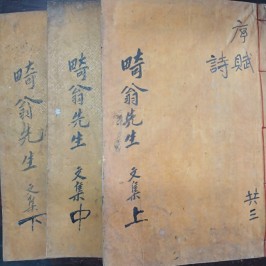 序賦
詩
共三
畸翁先生 文集上
畸翁先生 文集中
畸翁先生 文集下